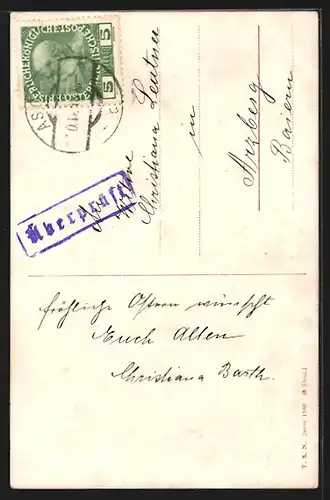 KAISERLICHE KÖNIGLICHE ÖSTERREICHISCHE POST
5 5
ASCH
Überprüft
An
Christiana Leutner
in
Arzberg
Baiern
fröhliche Ostern wünscht
Euch Allen
Christiana Barth.
T. S. N. Serie